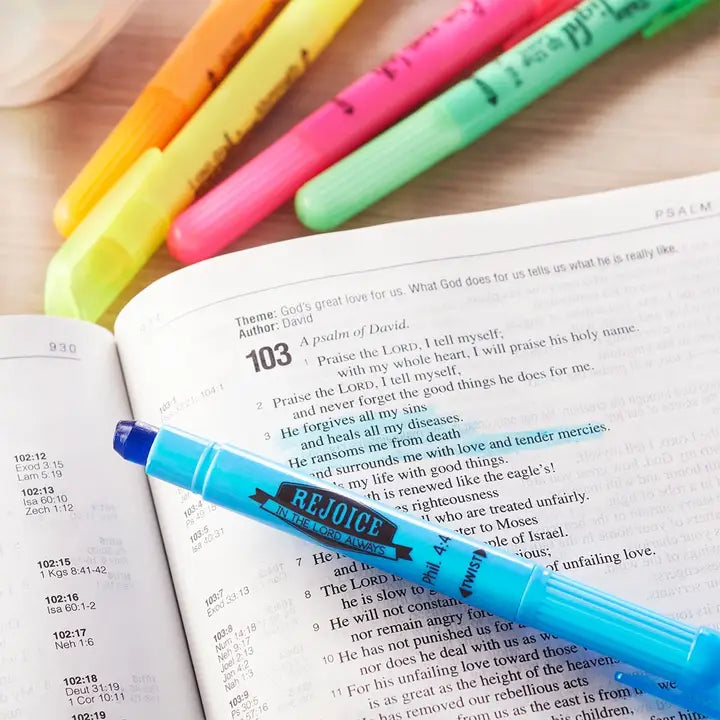 930
102:12
Exod 3:15
Lam 5:19
102:13
Isa 60:10
Zech 1:12
102:15
1 Kgs 8:41-42
102:16
Isa 60:1-2
102:17
Neh 1:6
102:18
Deut 31:19
1 Cor 10:11
102:19
PSALM
Theme: God's great love for us. What God does for us tells us what he is really like.
Author: David
103
A psalm of David.
1 Praise the LORD, I tell myself;
with my whole heart, I will praise his holy name.
2 Praise the LORD, I tell myself,
and never forget the good things he does for me.
3 He forgives all my sins
and heals all my diseases.
He ransoms me from death
and surrounds me with love and tender mercies.
s my life with good things.
th is renewed like the eagle's!
es righteousness
ll who are treated unfairly.
ter to Moses
ple of Israel.
ious;
of unfailing love.
7 He
8 The LORD
he is slow to
9 He will not constan
nor remain angry fore
10 He has not punished us for a
nor does he deal with us as we
11 For his unfailing love toward those
is as great as the height of the heavens
has removed our rebellious acts
as from us as the east is from
103:1
104:1
103:4
103:5
Isa 40:31
103:7
Exod 33:13
103:8
Num 14:18
Neh 9:17
Joel 2:13
Jon 4:2
Nah 1:3
103:9
Ps 30:5
Isa 57:16
REJOICE
IN THE LORD ALWAYS
Phil. 4:4
TWIST